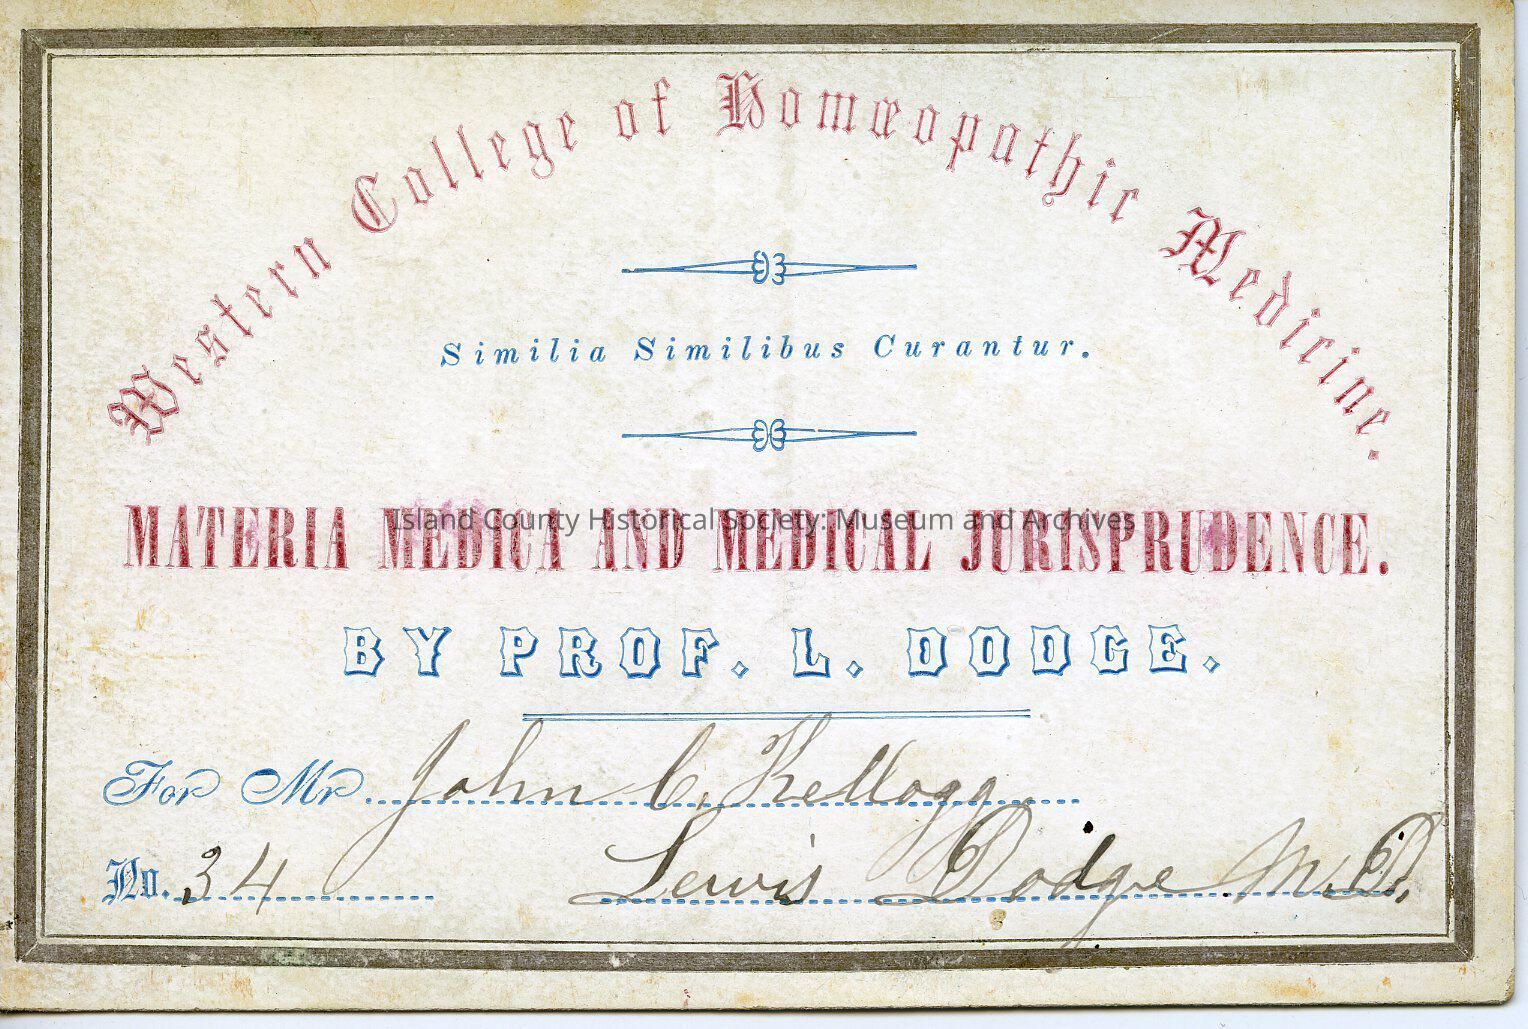 Western College of Homœopathic Medicine.
Similia Similibus Curantur.
MATERIA MEDICA AND MEDICAL JURISPRUDENCE.
Island County Historical Society: Museum and Archives
BY PROF. L. DODGE.
For Mr John C. Kellogg
No. 34 Lewis Dodge M.D.